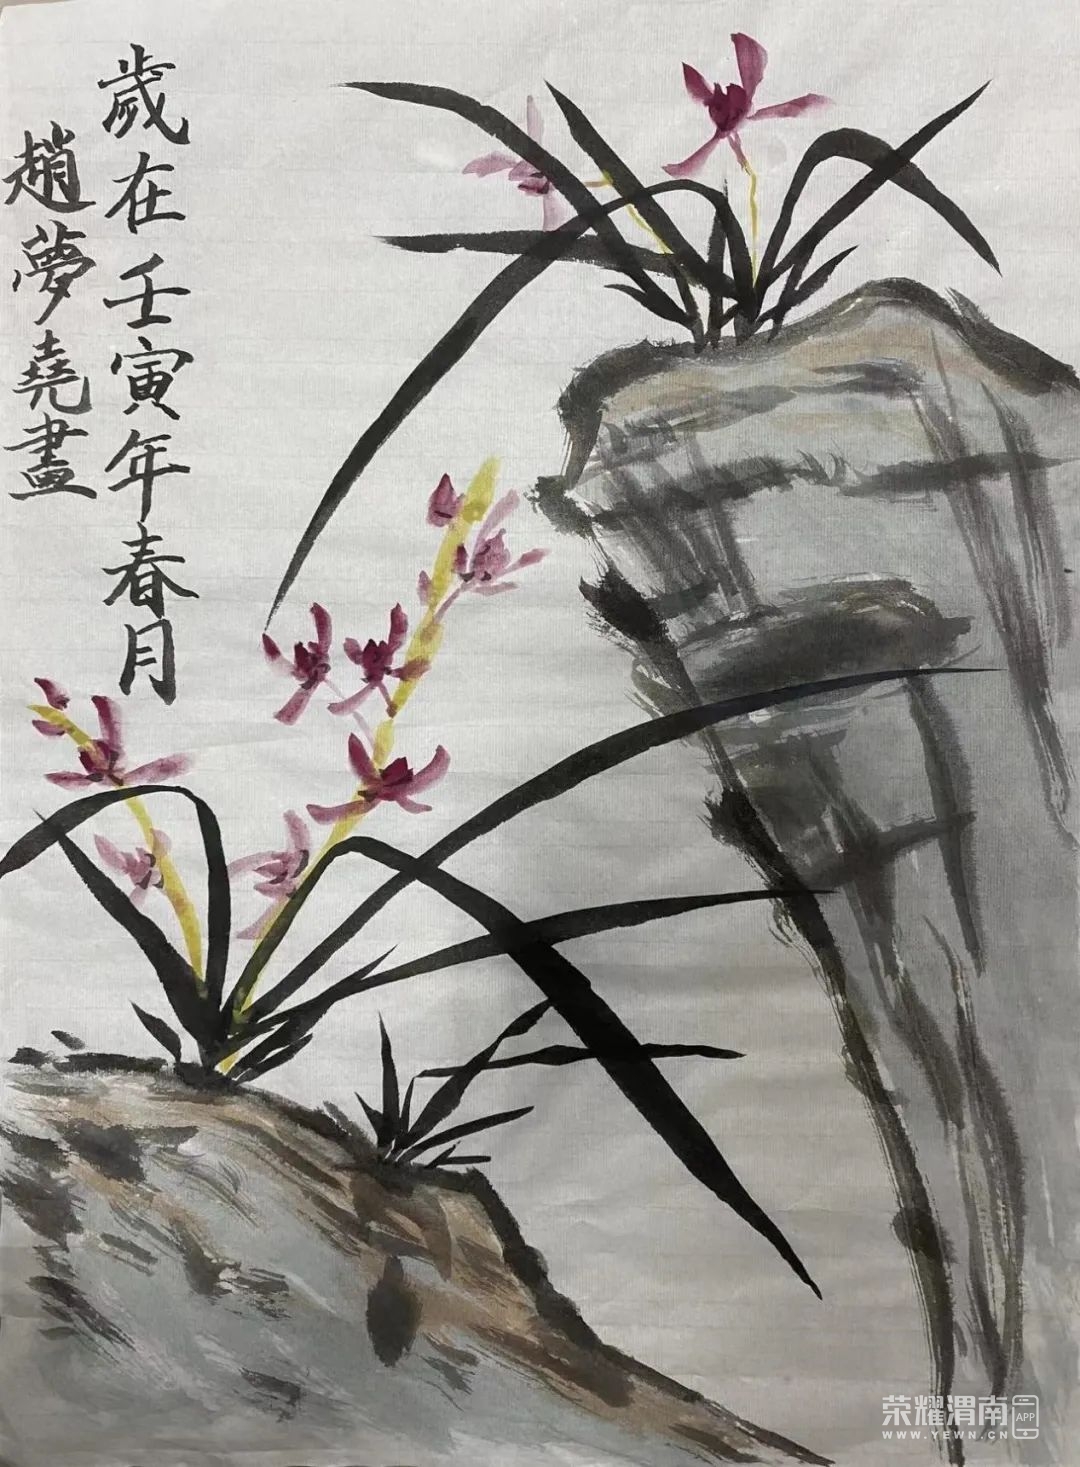 歲在壬寅年春月
趙夢堯畫
荣耀渭南APP
WWW.YEWN.CN